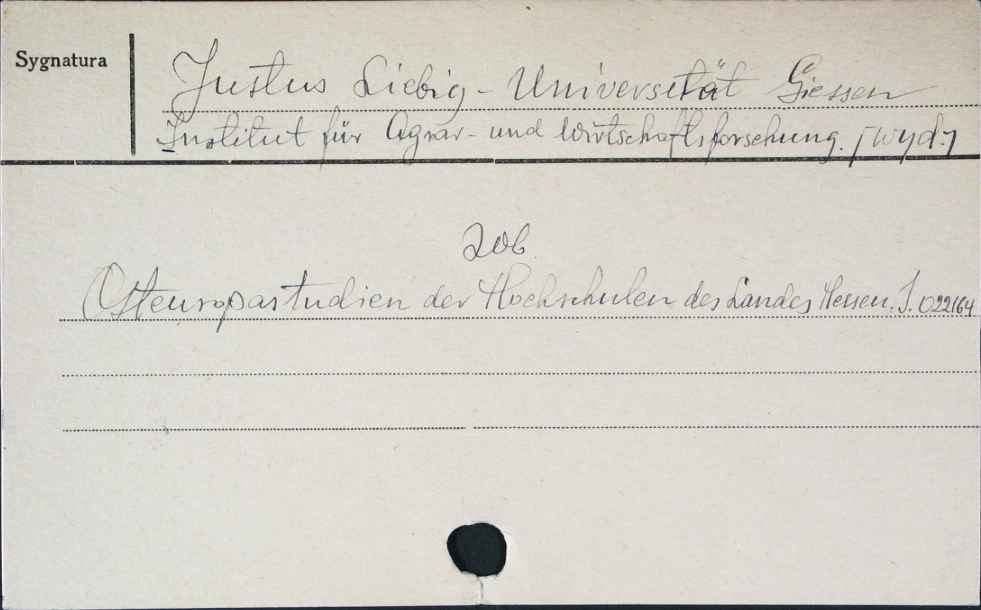 Sygnatura
Justus Liebig - Universität Giessen
Institut für Agrar- und Wirtschaftsforschung. [wyd.]
Zob.
Osteuropastudien der Hochschulen des Landes Hessen. S. 022164